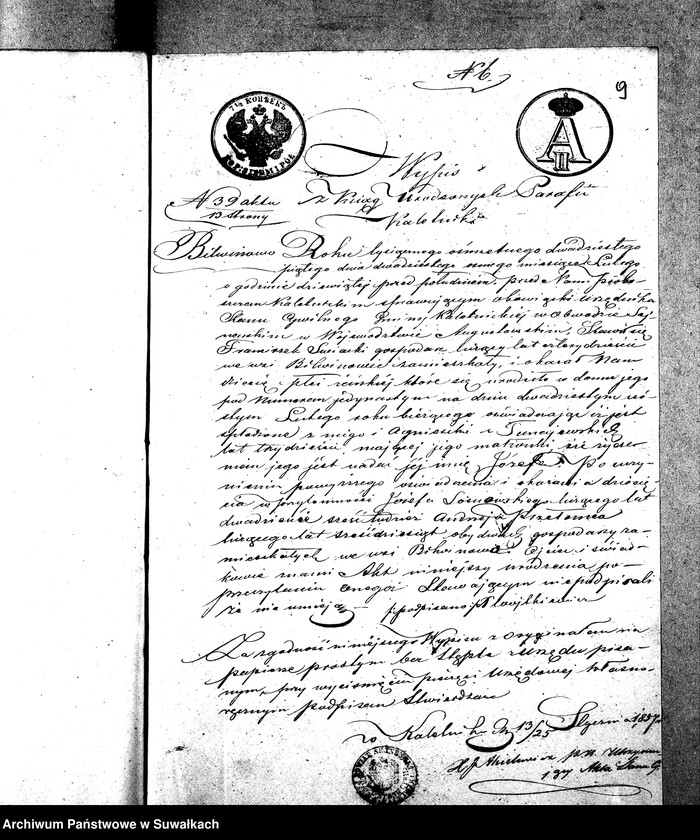 N 6.
9
7½ КОПѢЕКЪ
A
II
Wypis
N 39 aktu z Xiąg Urodzonych Parafii
13 strony Kaletnik
Bilwinowo Roku tysiącznego ośmsetnego dwudziestego
piątego dnia dwudziestego miesiąca Lutego
o godzinie dziewiątej przed południem, przed Nami Probo-
szczem Kaletnickim sprawującym obowiązki Urzędnika
Stanu Cywilnego Gminy Kaletnickiej w Obwodzie Sej-
neńskim w Województwie Augustowskim. Stawił się
Franciszek gospodarz liczący lat czterdzieści
we wsi Bilwinowie zamieszkały, i okazał Nam
dziecię płci żeńskiej które się urodziło w domu jego
pod Numerem jedynastym na dniu dwudziestym
Lutego roku bieżącego oświadczając iż jest
spłodzone z niego i Agnieszki z
lat trzydzieści mającej jego małżonki iż życze-
niem jego jest nadać jej imię Józefa. Po uczy-
nieniu powyższego oświadczenia i okazaniu dzieci-
cia w przytomności Józefa liczącego lat
dwadzieście sześć tudzież Andrzeja
liczącego lat sześćdziesiąt obydwóch gospodarzy za-
mieszkałych we wsi Bilwinowie Ojciec i świad-
kowie nami Akt niniejszy urodzenia po
przeczytaniu onegoż Stawającym niepodpisali
że nie umieją podpisano
Za zgodność niniejszego Wypisu z Oryginałem na
papierze prostym bez Stępla Urzędu pisa-
nym, przy wyciśnięciu pieczęci Urzędowej własno-
ręcznym podpisem Stwierdzam
w Kaletniku D 13/25 Stycznia 1857
Akta Stanu C.
Archiwum Państwowe w Suwałkach